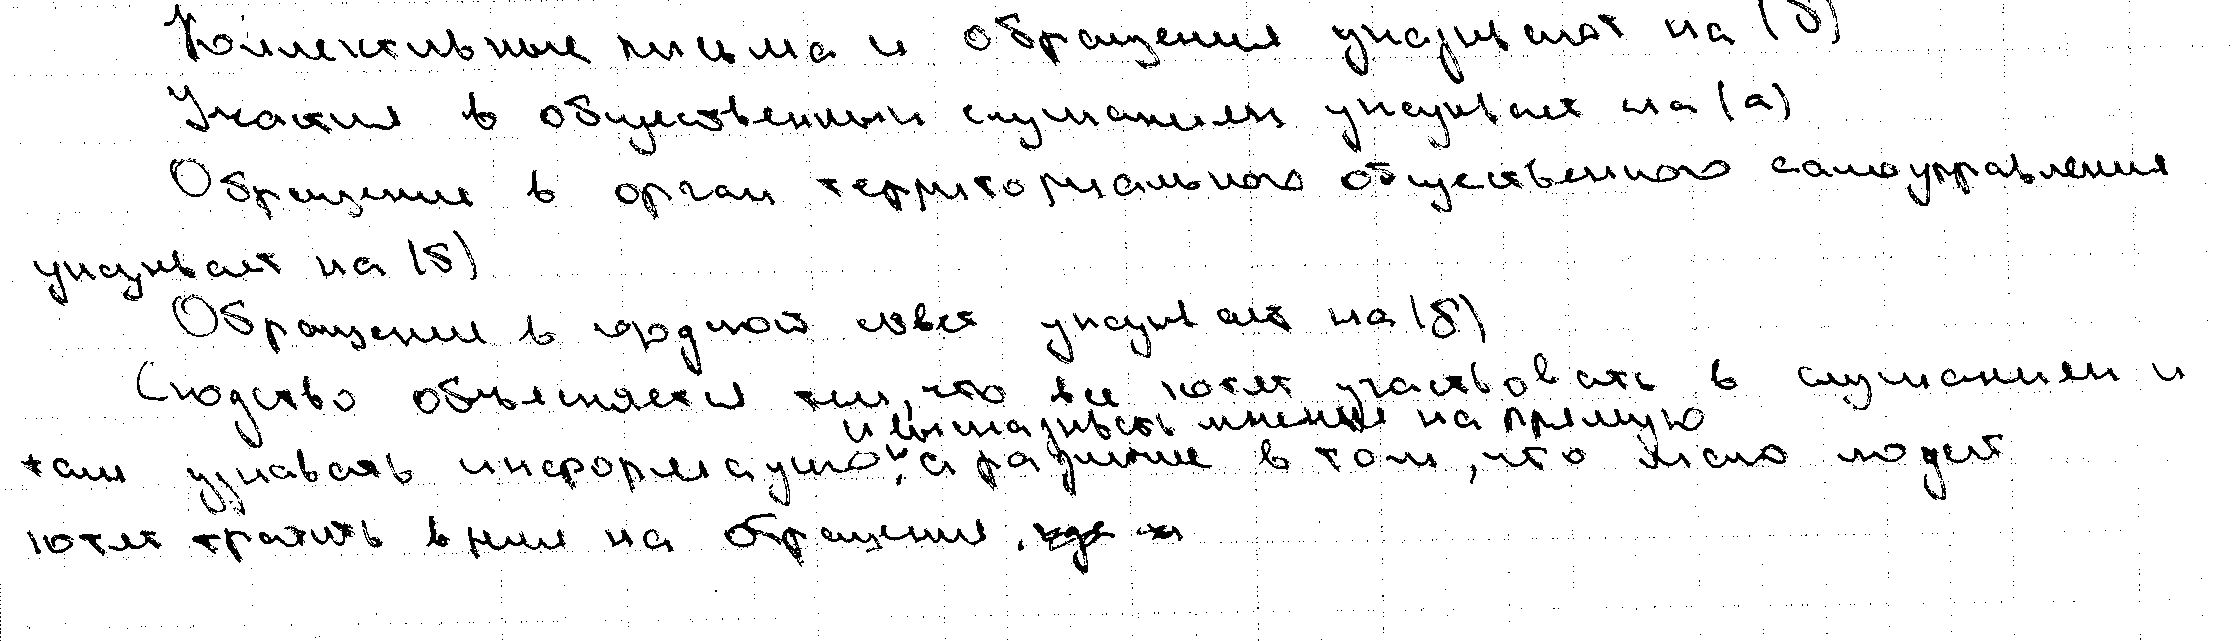 Коллективные письма и обращения указывают на (б)
Участия в общественных слушаниях указывает на (а)
Обращение в орган территориального общественного самоуправления
указывает на (б)
Обращение в городской совет указывает на (б)
Сходство объясняется тем, что все хотят участвовать в слушаниях и
и высказывать мнение на прямую
там узнавать информацию, а различие в том, что мало людей
хотят тратить время на обращения.